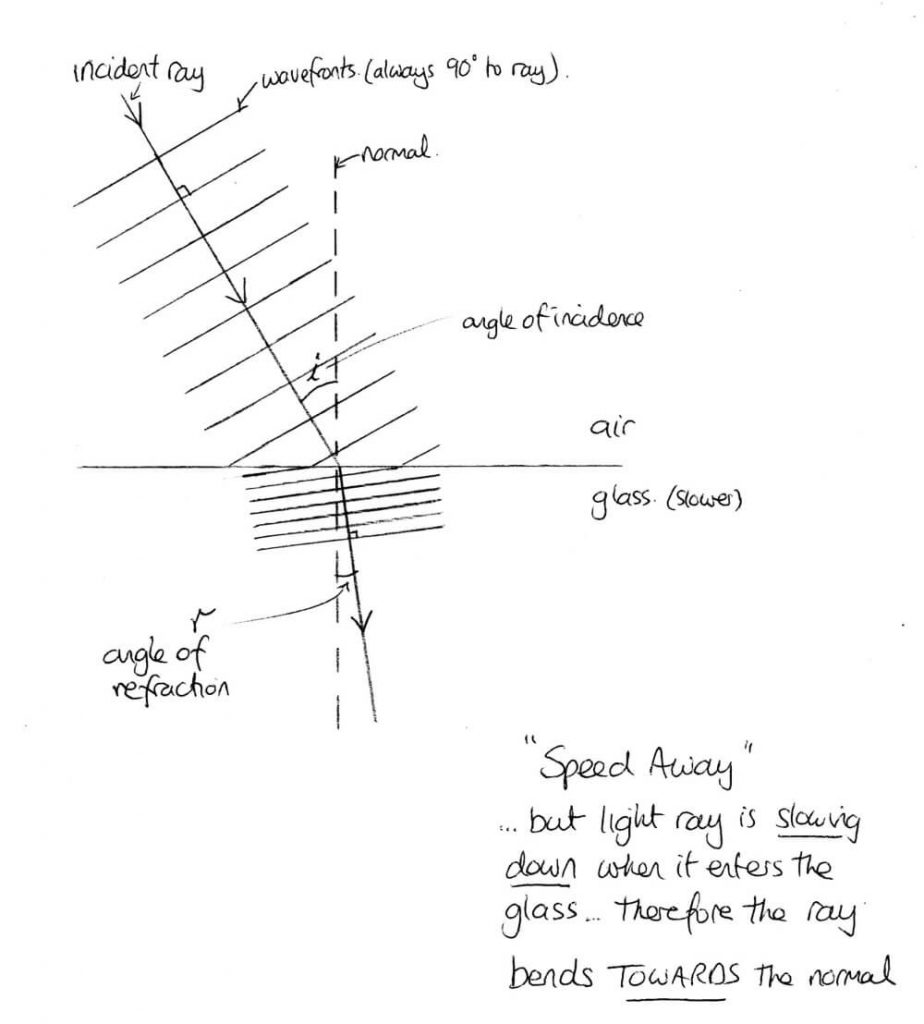 incident ray
wavefronts. (always 90° to ray).
normal.
i
angle of incidence
air
glass. (slower)
r
angle of
refraction
"Speed Away"
... but light ray is slowing
down when it enters the
glass... therefore the ray
bends TOWARDS the normal